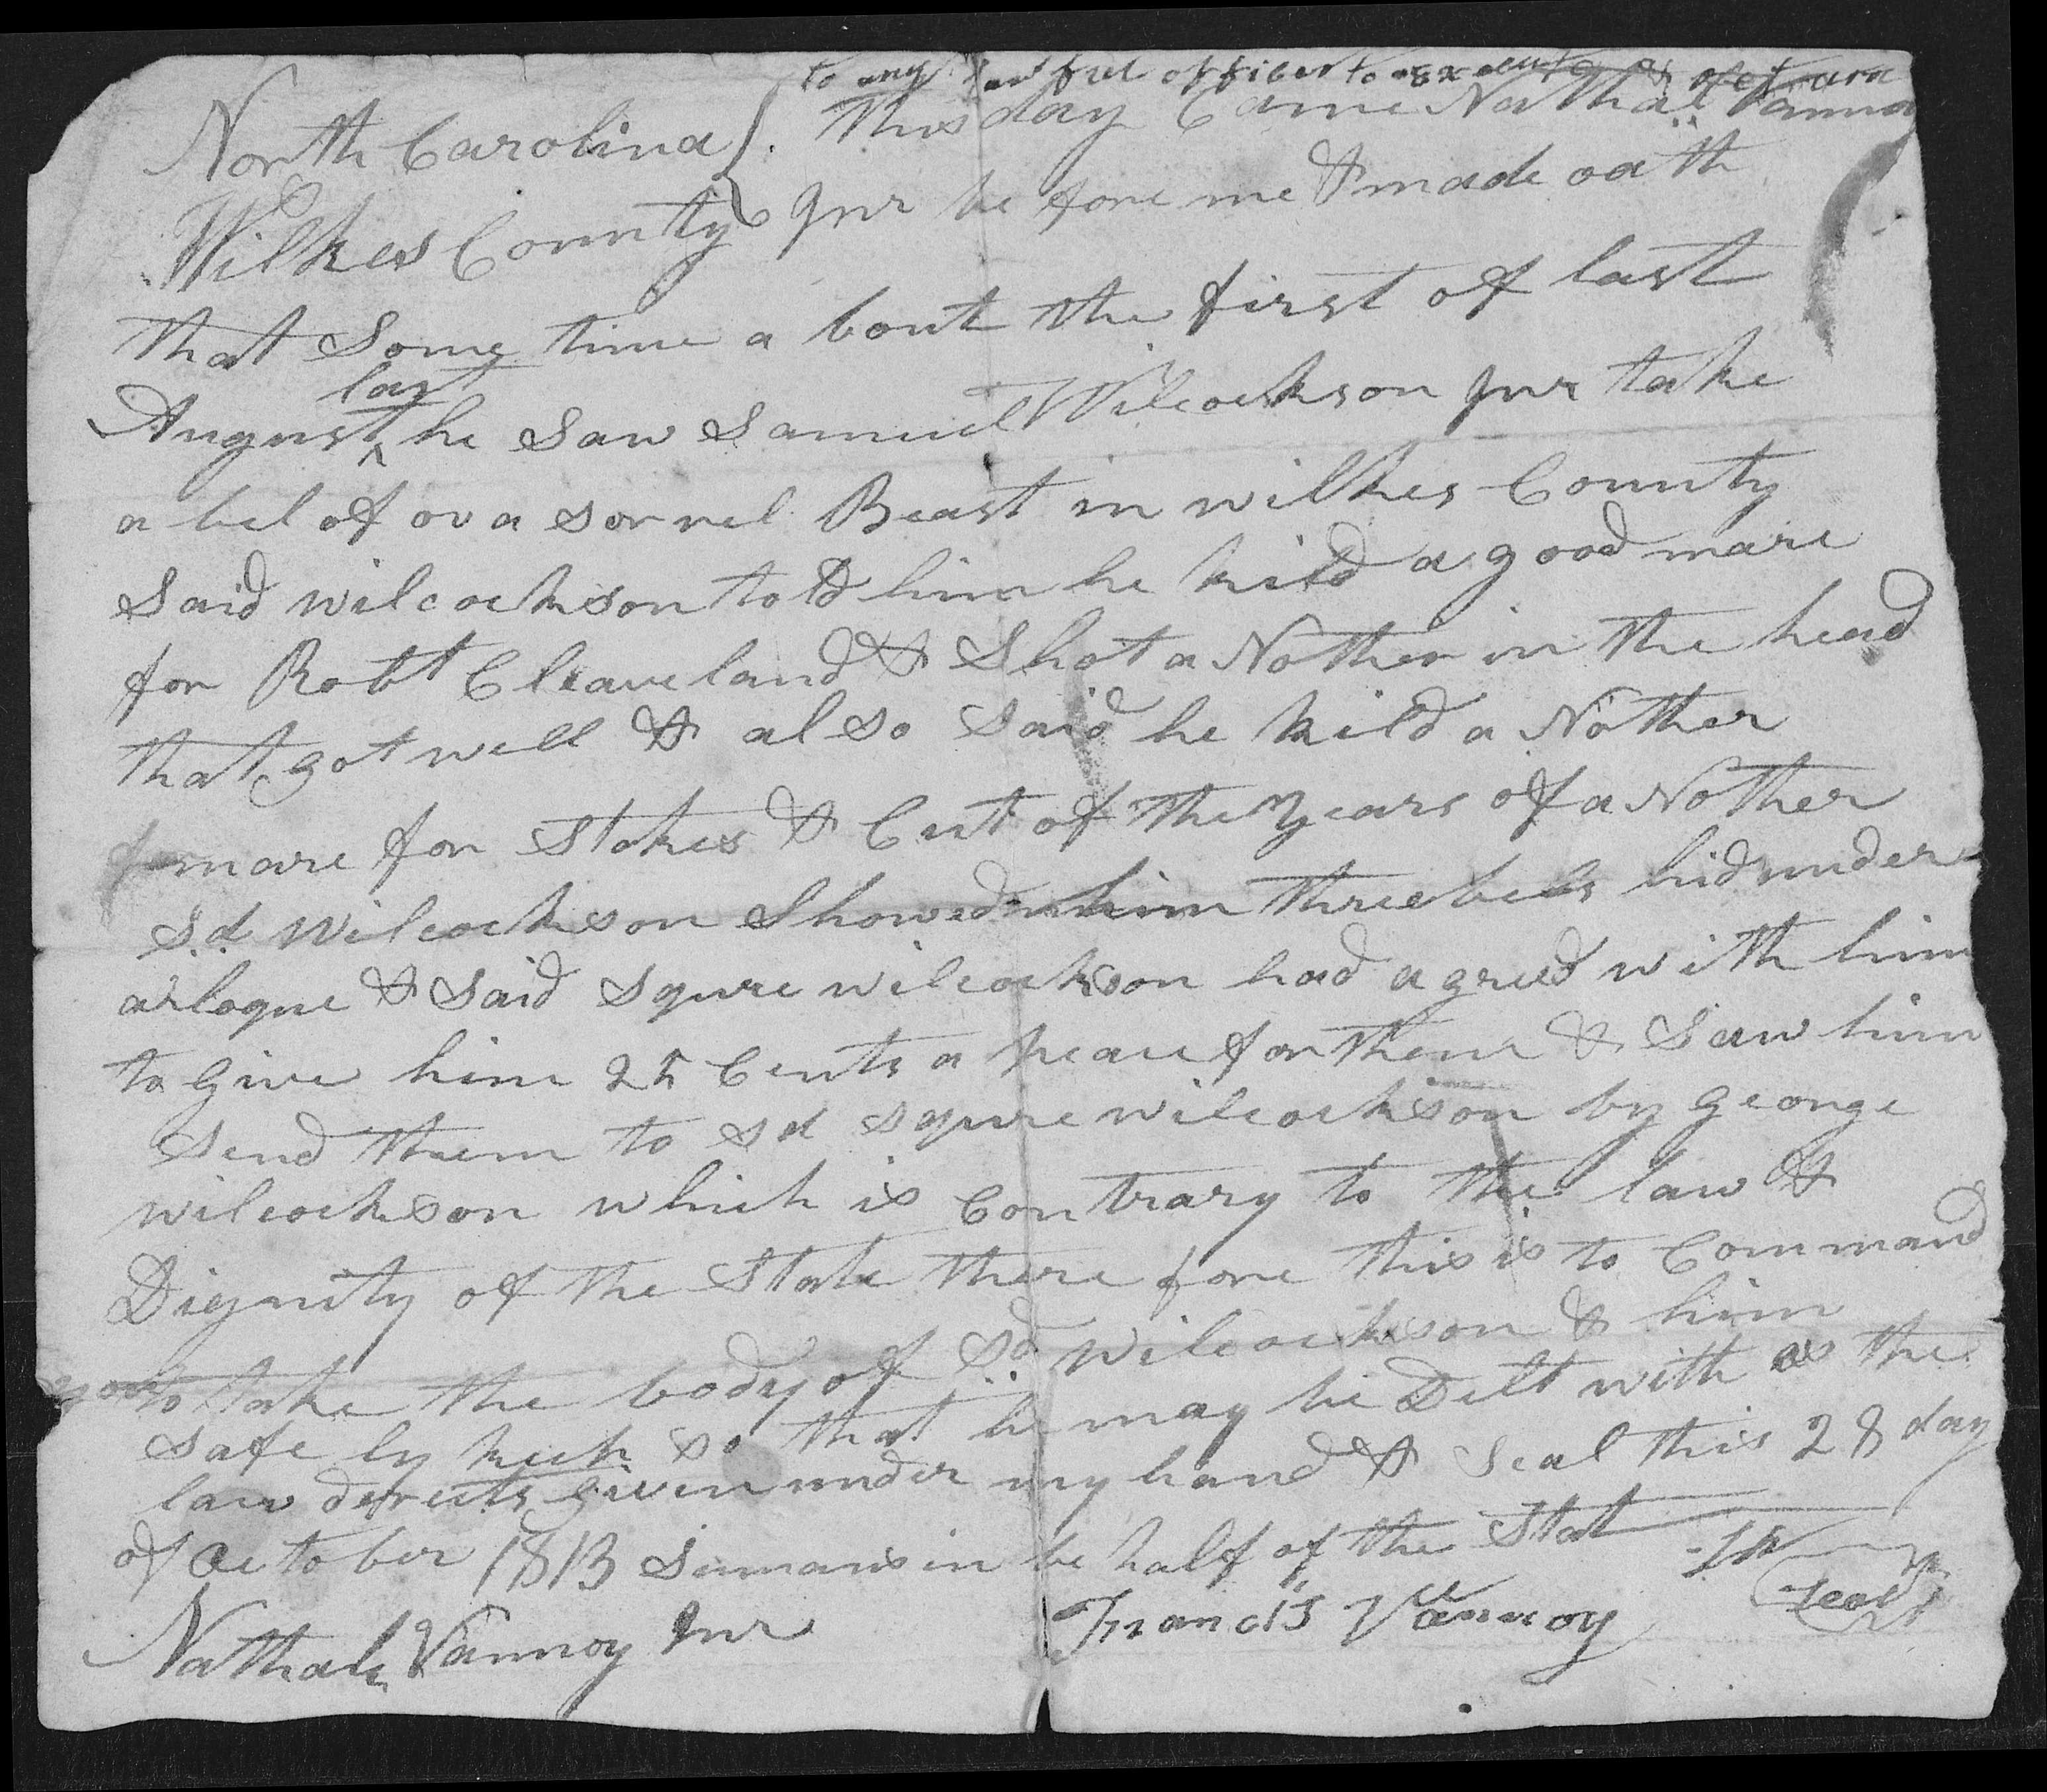 to any lawful officer to execute & return
North Carolina } This day Came Nathal Vannoy
Wilkes County } Jnr be fore me & made oath
that Some time a bout the first of last
August last he Saw Samuel Wilcockson Jnr take
a bel of ov a sorrel Beast in wilkes County
Said wilcockson told him he kild a good mare
for Robt Cleaveland & Shot a Nother in the head
that got well & also Said he kild a Nother
mare for Stokes & Cut of the years of a Nother
Sd Wilcockson Showed him three bels hid under
a logue & Said Squre wilcockson had agreed with him
to Give him 25 Cents a peace for them & Saw him
Send them to sd squre wilcockson by george
wilcockson which is Contrary to the law &
Dignity of the State there fore this is to Command
you to take the body of sd Wilcockson & him
safe ly keek so that he may be Delt with as the
law derects Given under my hand & Seal this 28 day
of October 1813 Sumans in be half of the Stat
Nathal Vannoy Jnr Francis Vannoy JP Seal